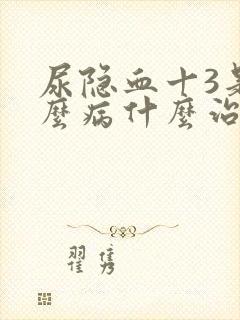 尿隐血十3是
麼病什麼治
翟隽